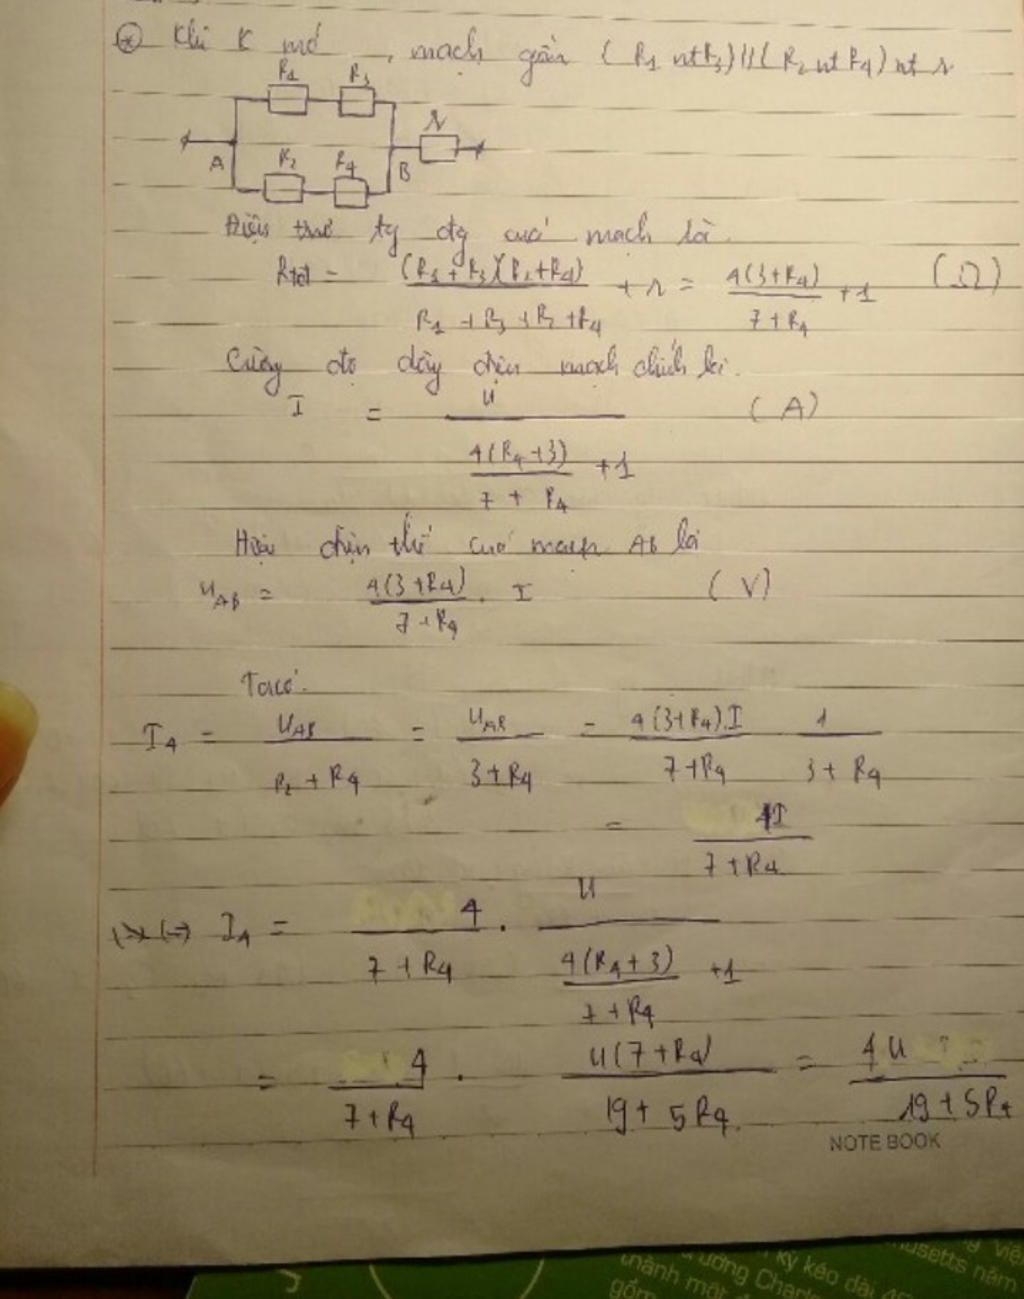 ⊛ Khi K mở , mạch gồm (R1 nt R3)//(R2 nt R4) nt r
R1 R3
r
A R2 R4 B
Điện trở tg đg của mạch là.
Rtđ = (R1 + R3)(R2+R4) / R1 + R3 + R2 + R4 + r = 4(3+R4) / 7 + R4 + 1 (Ω)
Cường độ dòng điện mạch chính là.
I = U / 4(R4+3) / 7 + R4 + 1 (A)
Hiệu điện thế của mạch AB là
UAB = 4(3+R4) / 7+R4 . I (V)
Ta có.
I4 = UAB / R2 + R4 = UAB / 3+R4 = 4(3+R4).I / 7+R4 1 / 3 + R4
= 4I / 7 + R4
(=) I4 = 4 / 7 + R4 . U / 4(R4 + 3) / 7 + R4 + 1
= 4 / 7+R4 . U(7+R4) / 19 + 5R4 = 4U / 19 + 5R4
NOTE BOOK
kỳ kéo dài
thành một
ường Charl
gồm
usetts năm